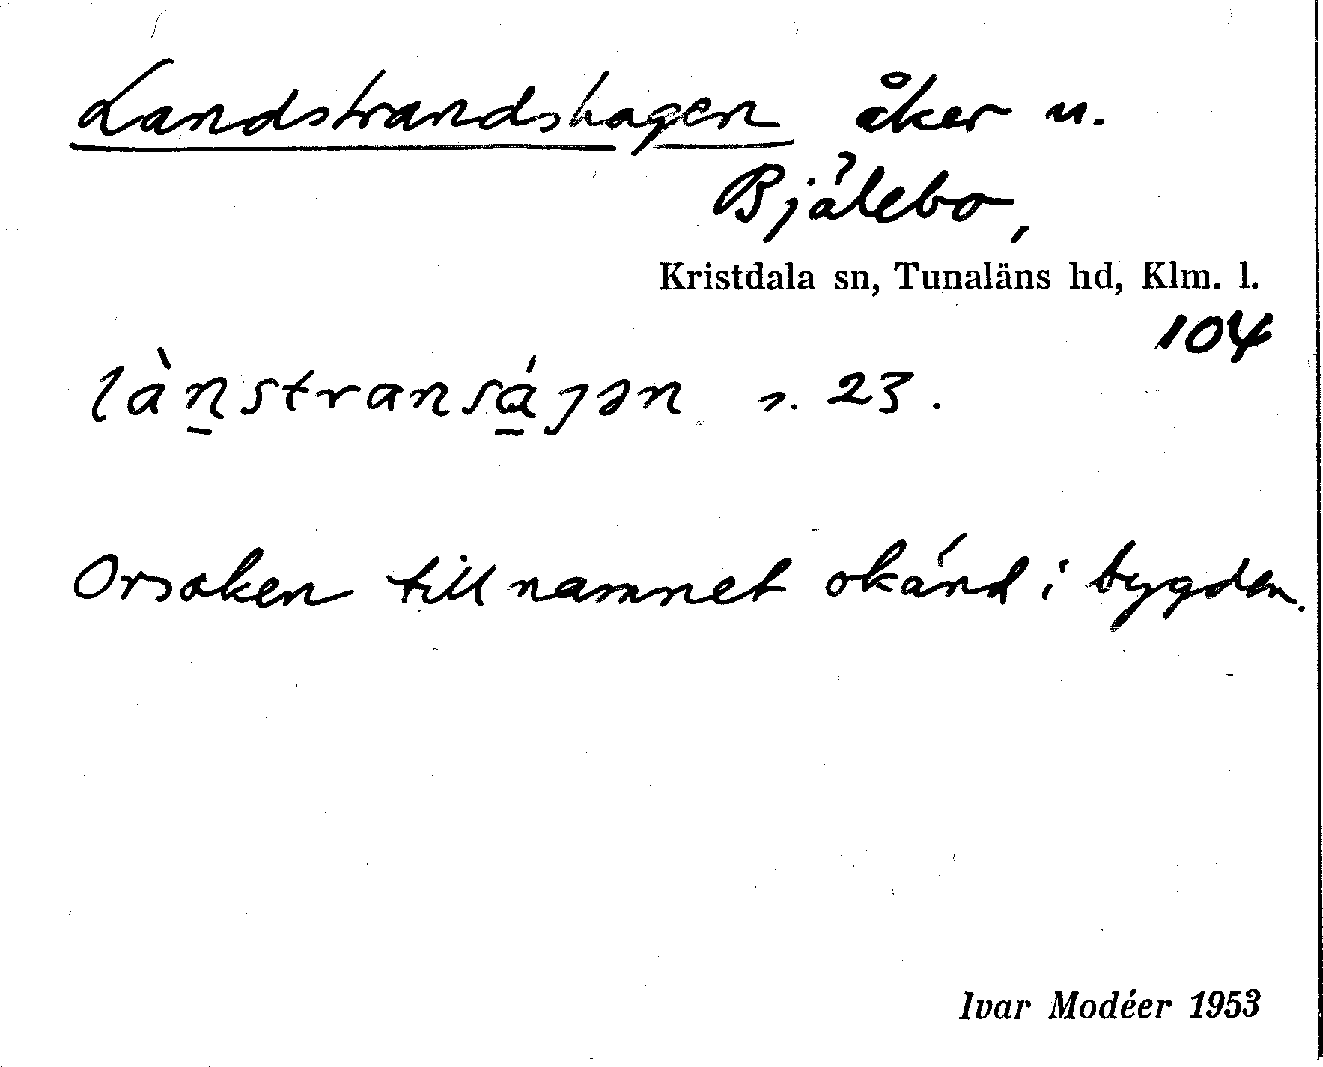 Landstrandshagen åker u.
Bjälebo,
Kristdala sn, Tunaläns hd, Klm. l.
104
là̱nstransá̱gən s. 23.
Orsaken till namnet okänd i bygden.
Ivar Modéer 1953